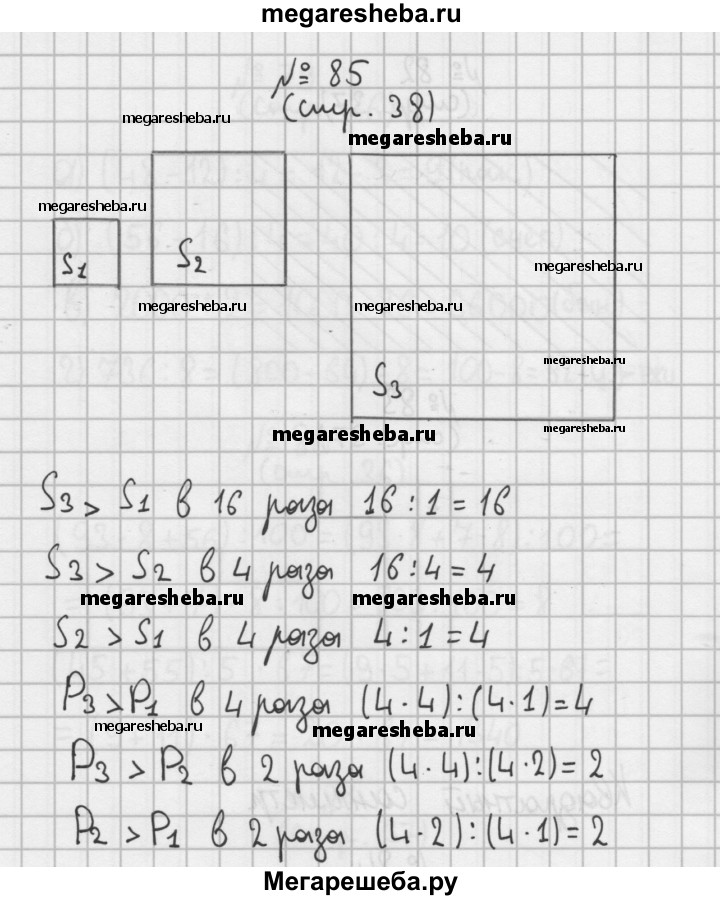 megaresheba.ru
№ 85
(стр. 38)
megaresheba.ru
megaresheba.ru
megaresheba.ru
S1
S2
megaresheba.ru
megaresheba.ru
megaresheba.ru
megaresheba.ru
S3
megaresheba.ru
megaresheba.ru
S3 > S1 в 16 раза 16 : 1 = 16
S3 > S2 в 4 раза 16 : 4 = 4
megaresheba.ru megaresheba.ru
S2 > S1 в 4 раза 4 : 1 = 4
P3 > P1 в 4 раза (4 · 4) : (4 · 1) = 4
megaresheba.ru megaresheba.ru
P3 > P2 в 2 раза (4 · 4) : (4 · 2) = 2
P2 > P1 в 2 раза (4 · 2) : (4 · 1) = 2
Мегарешеба.ру